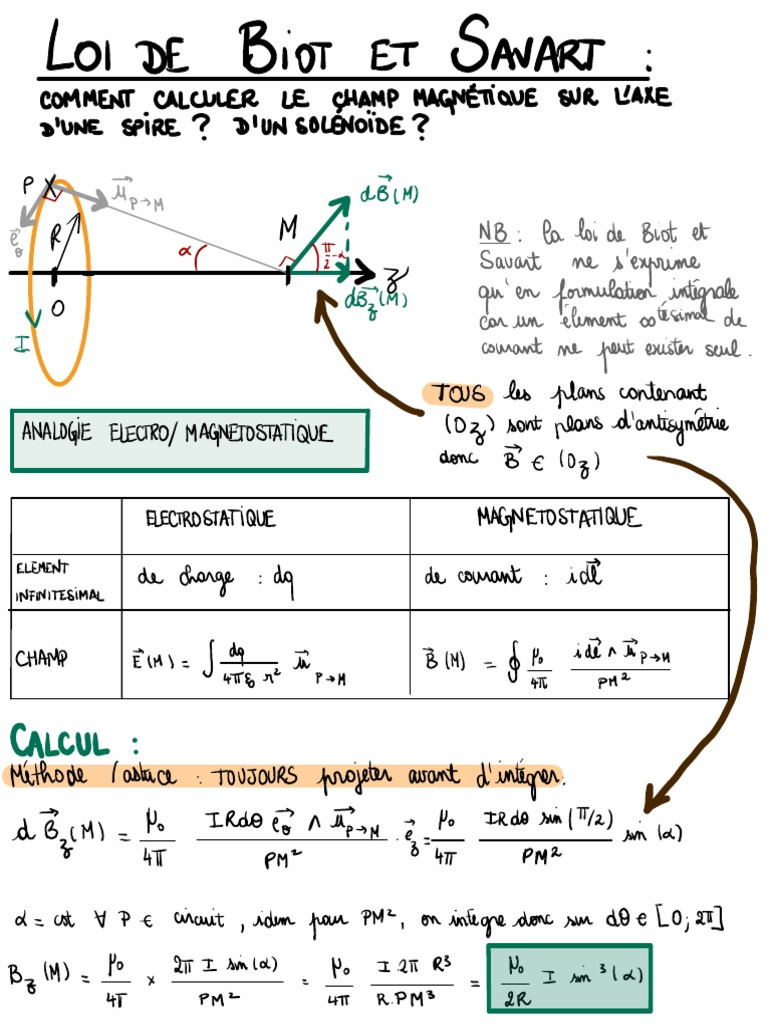 LOI DE BIOT ET SAVART :
COMMENT CALCULER LE CHAMP MAGNÉTIQUE SUR L'AXE
D'UNE SPIRE ? D'UN SOLÉNOÏDE ?
P
\vec{u}_{P→M}
d\vec{B}(M)
\vec{e}_θ
R
α
M
π/2 - α
z
O
d\vec{B}_z(M)
I
NB : la loi de Biot et
Savart ne s'exprime
qu'en formulation intégrale
car un élément ∞tésimal de
courant ne peut exister seul.
TOUS les plans contenant
(Oz) sont plans d'antisymétrie
donc \vec{B} ∈ (Oz)
ANALOGIE ELECTRO/MAGNETOSTATIQUE
ELECTROSTATIQUE MAGNETOSTATIQUE
ELEMENT
INFINITESIMAL
de charge : dq
de courant : i\vec{dl}
CHAMP
\vec{E}(M) = ∫ dq/(4πε₀ r²) \vec{u}_{P→M}
\vec{B}(M) = ∮ μ₀/4π (i\vec{dl} ∧ \vec{u}_{P→M})/PM²
CALCUL :
Méthode / astuce : TOUJOURS projeter avant d'intégrer.
d\vec{B}_z(M) = μ₀/4π (IRdθ \vec{e}_θ ∧ \vec{u}_{P→M})/PM² . \vec{e}_z = μ₀/4π (IRdθ sin(π/2))/PM² sin(α)
α = cst ∀ P ∈ circuit, idem pour PM², on intègre donc sur dθ ∈ [0;2π]
B_z(M) = μ₀/4π × (2π I sin(α))/PM² = μ₀/4π (I 2π R³)/(R.PM³) = μ₀/2R I sin³(α)